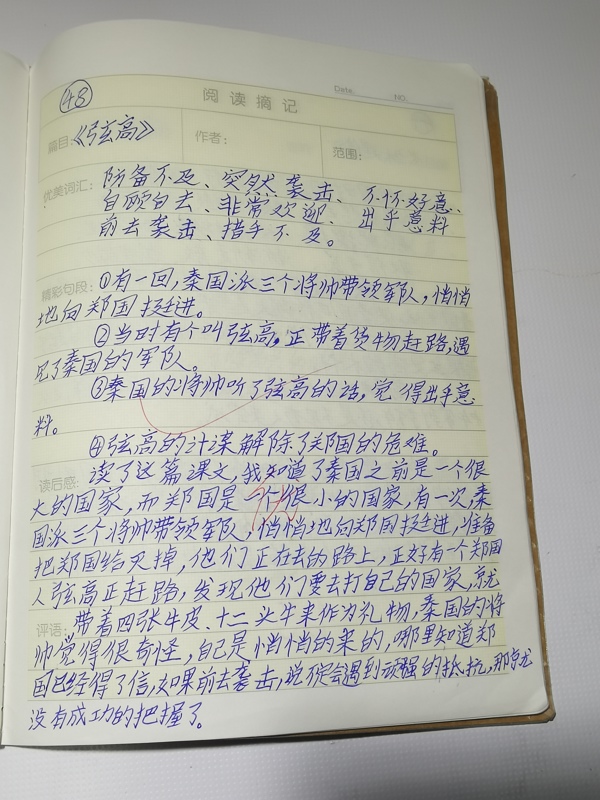 Date. NO.
48 阅读摘记
篇目：《弦高》 作者： 范围：
优美词汇：防备不及、突然袭击、不怀好意、
自顾自去、非常欢迎、出乎意料
前去袭击、措手不及。
精彩句段：①有一回，秦国派三个将帅带领军队，悄悄
地向郑国挺进。
②当时有个叫弦高。正带着货物赶路，遇
见了秦国的军队。
③秦国的将帅听了弦高的话，觉得出乎意
料。
④弦高的计谋解除了郑国的危难。
读后感：读了这篇课文，我知道了秦国之前是一个很
大的国家，而郑国是一个很小的国家，有一次，秦
国派三个将帅带领军队，悄悄地向郑国挺进，准备
把郑国给灭掉，他们正在去的路上，正好有一个郑国
人弦高正赶路，发现他们要去打自己的国家，就
评语：带着四张牛皮、十二头牛来作为礼物，秦国的将
帅觉得很奇怪，自己是悄悄的来的，哪里知道郑
国已经得了信，如果前去袭击，说定会遇到顽强的抵抗，那就
没有成功的把握了。